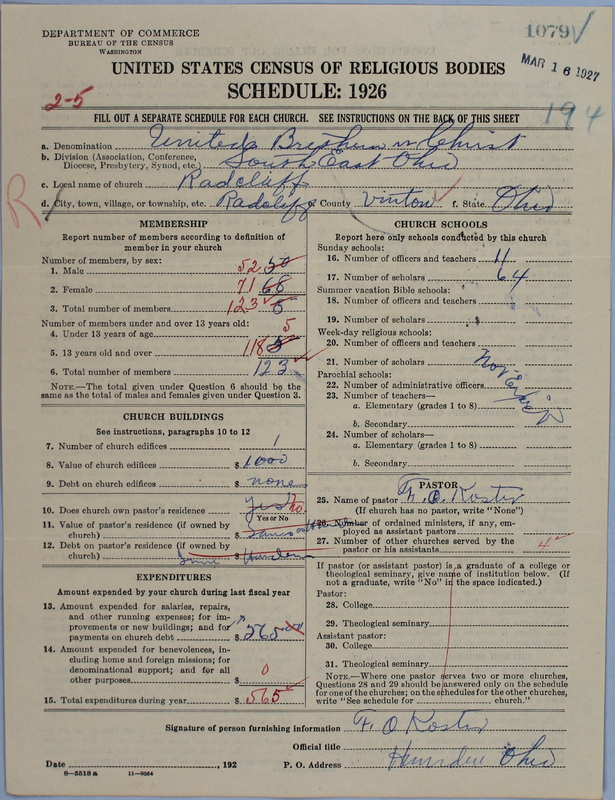 DEPARTMENT OF COMMERCE
BUREAU OF THE CENSUS
WASHINGTON
1079
MAR 16 1927
UNITED STATES CENSUS OF RELIGIOUS BODIES
SCHEDULE: 1926
2-5
194
FILL OUT A SEPARATE SCHEDULE FOR EACH CHURCH. SEE INSTRUCTIONS ON THE BACK OF THIS SHEET
a. Denomination United Brethren in Christ
b. Division (Association, Conference,
Diocese, Presbytery, Synod, etc.) South East Ohio
c. Local name of church Radcliff
R
d. City, town, village, or township, etc. Radcliff e. County Vinton f. State Ohio
MEMBERSHIP
Report number of members according to definition of
member in your church
Number of members, by sex:
1. Male 52
2. Female 71 68
3. Total number of members 123
Number of members under and over 13 years old:
4. Under 13 years of age 5
5. 13 years old and over 118
6. Total number of members 123
NOTE.—The total given under Question 6 should be
same as the total of males and females given under Question 3.
CHURCH BUILDINGS
See instructions, paragraphs 10 to 12
7. Number of church edifices 1
8. Value of church edifices $ 1000
9. Debt on church edifices $ none
10. Does church own pastor's residence yes no
Yes or No
11. Value of pastor's residence (if owned by
church) $
12. Debt on pastor's residence (if owned by
church) $
EXPENDITURES
Amount expended by your church during last fiscal year
13. Amount expended for salaries, repairs,
and other running expenses; for im-
provements or new buildings; and for
payments on church debt $ 565
14. Amount expended for benevolences, in-
cluding home and foreign missions; for
denominational support; and for all
other purposes $ 0
15. Total expenditures during year $ 565
CHURCH SCHOOLS
Report here only schools conducted by this church
Sunday schools:
16. Number of officers and teachers 11
17. Number of scholars 64
Summer vacation Bible schools:
18. Number of officers and teachers
19. Number of scholars
Week-day religious schools:
20. Number of officers and teachers
21. Number of scholars
Parochial schools:
22. Number of administrative officers
23. Number of teachers—
a. Elementary (grades 1 to 8)
b. Secondary
24. Number of scholars—
a. Elementary (grades 1 to 8)
b. Secondary
PASTOR
25. Name of pastor F. O. Koster
(If church has no pastor, write "None")
26. Number of ordained ministers, if any, em-
ployed as assistant pastors
27. Number of other churches served by the
pastor or his assistants 4
If pastor (or assistant pastor) is a graduate of a college or
theological seminary, give name of institution below. (If
not a graduate, write "No" in the space indicated.)
Pastor:
28. College
29. Theological seminary
Assistant pastor:
30. College
31. Theological seminary
NOTE.—Where one pastor serves two or more churches,
Questions 28 and 29 should be answered only on the schedule
for one of the churches; on the schedules for the other churches,
write "See schedule for church."
Signature of person furnishing information F. O Koster
Official title
Date , 192 P. O. Address Hamden Ohio
8—5518 a 11—9054